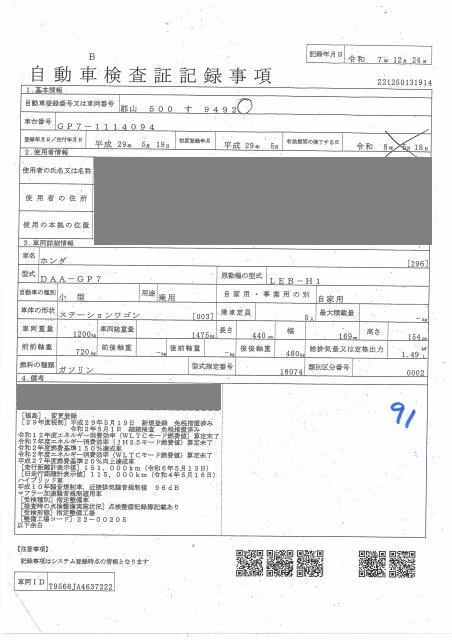 B
記録年月日 令和 7年 12月 24日
自動車検査証記録事項
221250131914
1.基本情報
自動車登録番号又は車両番号 郡山 500 す 9492
車台番号 GP7-1114094
登録年月日/交付年月日 平成 29年 5月 19日 初度登録年月 平成 29年 5月 有効期間の満了する日 令和 8年 5月 18日
2.使用者情報
使用者の氏名又は名称
使用者の住所
使用の本拠の位置
3.車両詳細情報
車名 ホンダ [296]
型式 DAA-GP7 原動機の型式 LEB-H1
自動車の種別 小型 用途 乗用 自家用・事業用の別 自家用
車体の形状 ステーションワゴン [003] 乗車定員 5人 最大積載量 -kg
車両重量 1200kg 車両総重量 1475kg 長さ 440cm 幅 169cm 高さ 154cm
前前軸重 720kg 前後軸重 -kg 後前軸重 -kg 後後軸重 480kg 総排気量又は定格出力 1.49L
燃料の種類 ガソリン 型式指定番号 18074 類別区分番号 0002
4.備考
[福島],変更登録
[29年度税制]平成29年5月19日 新規登録 免税措置済み
令和2年5月1日 継続検査 免税措置済み
令和12年度エネルギー消費効率(WLTCモード燃費値)算定未了
令和7年度エネルギー消費効率(JH25モード燃費値)算定未了
令和2年度燃費基準150%達成車
令和2年度エネルギー消費効率(WLTCモード燃費値)算定未了
平成27年度燃費基準20%向上達成車
[走行距離計表示値]151,000km(令和6年5月13日)
[旧走行距離計表示値]115,000km(令和4年5月16日)
ハイブリッド車
平成10年騒音規制車,近接排気騒音規制値 96dB
マフラー加速騒音規制適用車
[受検種別]指定整備車
[検査時の点検整備実施状況]点検整備記録簿記載あり
[受検形態]指定整備工場
[整備工場コード]22-00205
以下余白
91
【注意事項】
記録事項はシステム登録時点の情報となります
車両ID T9566JA4637222